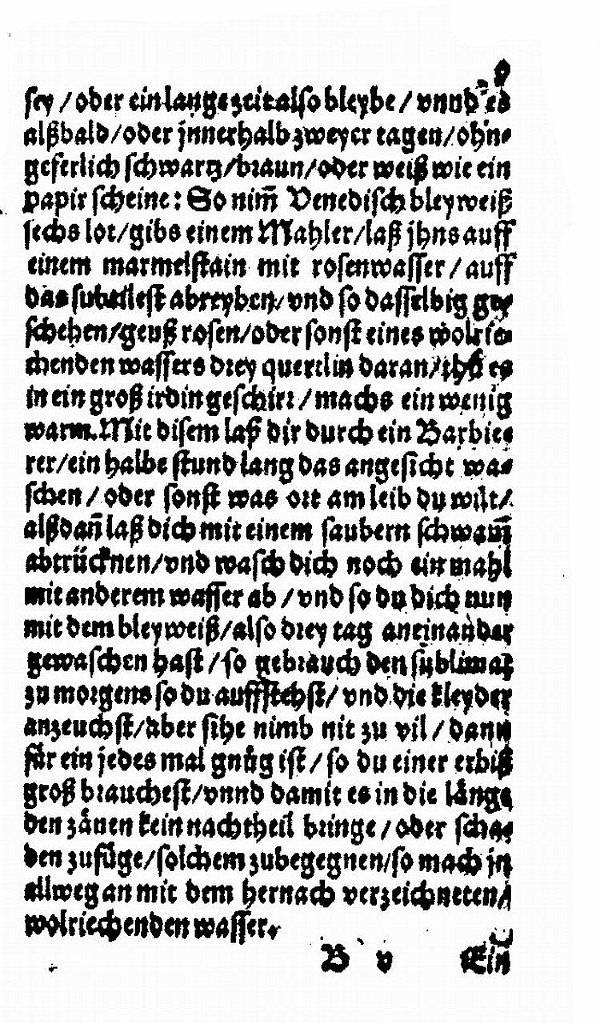 9
sey / oder ein lange zeit also bleybe / vnnd es
alßbald/oder jnnerhalb zweyer tagen/ohn-
geferlich schwartz/braun/oder weiß wie ein
papir scheine: So nim̃ Venedisch bleyweiß
sechs lot/gibs einem Mahler/laß jhns auff
einem marmelstain mit rosenwasser / auff
das subtellest abreyben/vnd so dasselbig ge-
schehen/geuß rosen/oder sonst eines wolrie-
chenden wassers drey quertlin daran/thů es
in ein groß irdin geschirr/machs ein wenig
warm. Mit disem laß dir durch ein Barbie-
rer/ein halbe stund lang das angesicht wa-
schen / oder sonst was ort am leib du wilt/
alßdañ laß dich mit einem saubern schwam̃
abtrücknen/vnd wasch dich noch ein mahl
mit anderem wasser ab / vnd so du dich nun
mit dem bleyweiß/also drey tag aneinander
gewaschen hast / so gebrauch den sublimat
zu morgens so du auffstehst/ vnd die kleyder
anzeuchst/Aber sihe nimb nit zu vil / dann
für ein jedes mal gnůg ist / so du einer erbiß
groß brauchest/vnnd damit es in die länge
den zänen kein nachtheil bringe / oder scha-
den zufüge/solchem zubegegnen/so mach jn
allweg an mit dem hernach verzeichneten/
wolriechenden wasser.
B v Ein